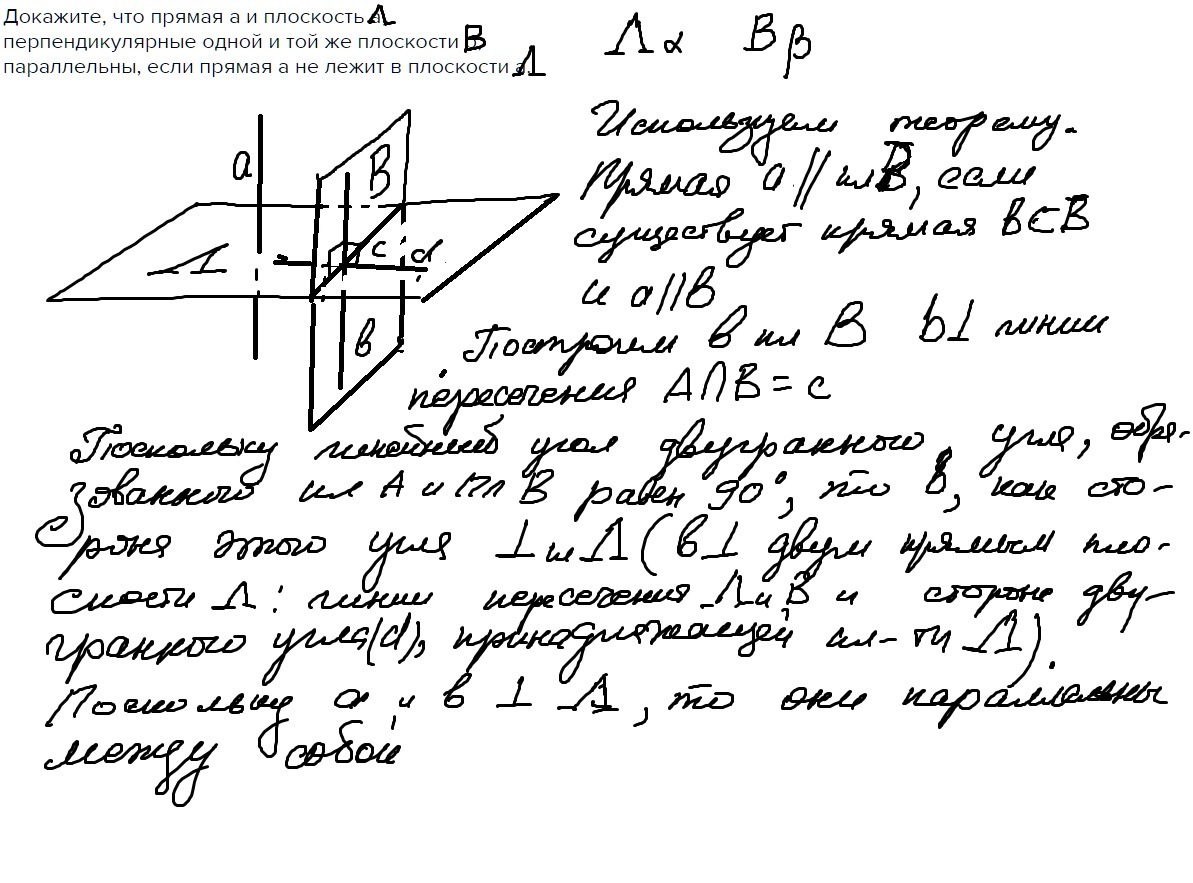 Докажите, что прямая а и плоскость а Λ
перпендикулярные одной и той же плоскости В
параллельны, если прямая а не лежит в плоскости а. Λ
Λ α В β
a
В
Λ
c
d
в
Используем теорему.
Прямая a // пл В, если
существует прямая в⊂В
и a//в
Построим в пл В b⊥ линии
пересечения А∩В = с
Поскольку линейный угол двугранного угла, обра-
зованного пл А и пл В равен 90°, то в, как сто-
рона этого угла ⊥ пл Λ (в⊥ двум прямым пло-
скости Λ: линии пересечения Λ и В и стороне дву-
гранного угла (d), принадлежащей пл-ти Λ).
Поскольку а и в ⊥ Λ, то они параллельны
между собой